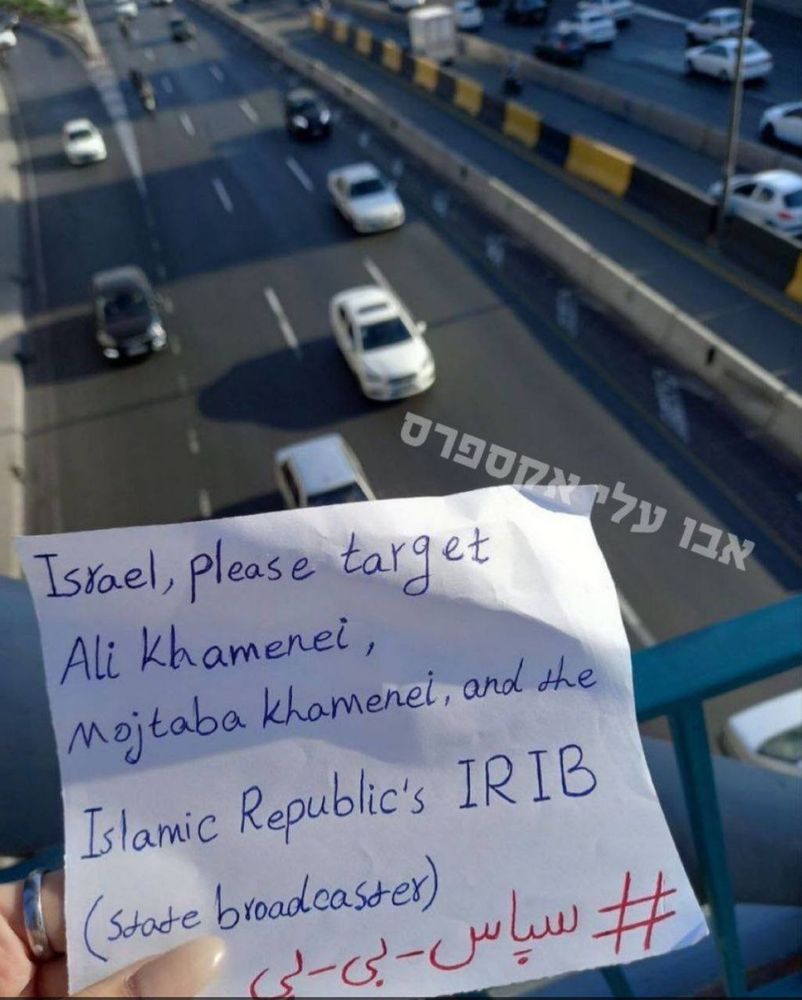 אבו עלי אקספרס
Israel, please target
Ali Khamenei,
Mojtaba Khamenei, and the
Islamic Republic's IRIB
(State broadcaster)
#سپاس-بی-بی